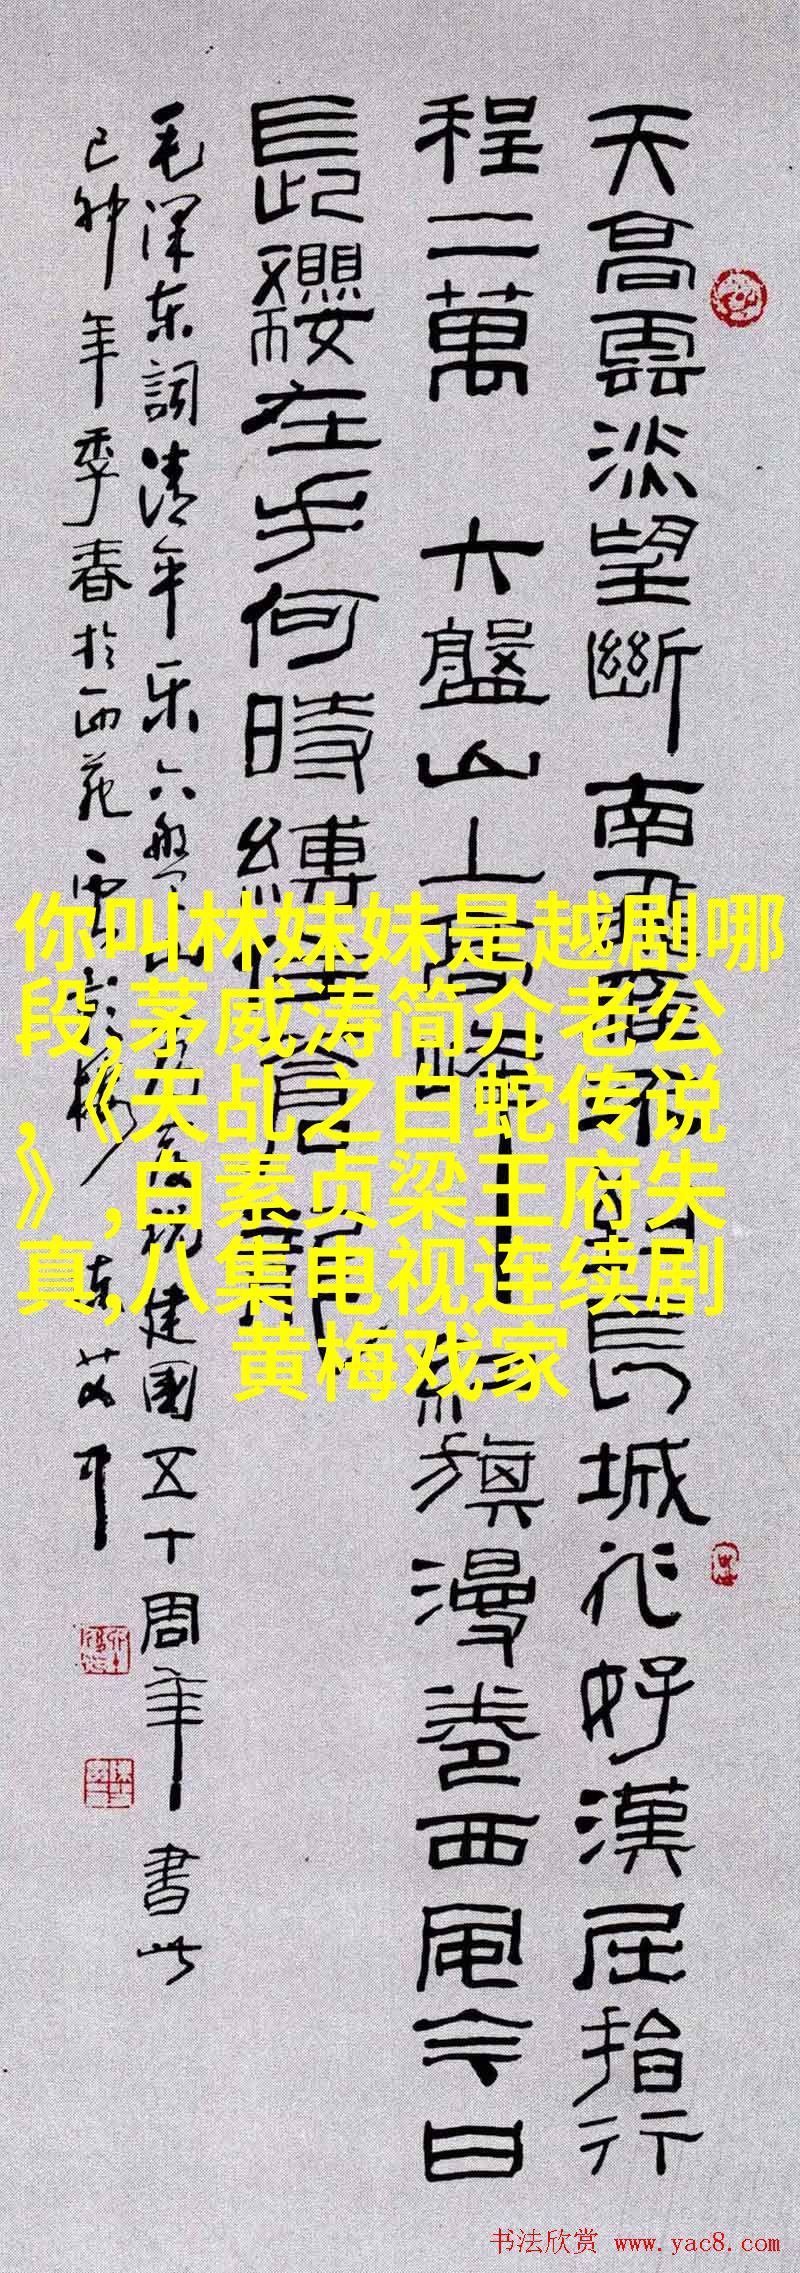 天高雲淡望斷南飛雁不到長城非好漢屈指行
程二萬 六盤山上高峰 紅旗漫卷西風今日
長纓在手何時縛住蒼龍
毛澤东詞清平乐六盤山 建國五十周年 書此
己卯年季春於西苑
你叫林妹妹是越剧哪
段,茅威涛简介老公
,《天乩之白蛇传说
》,白素贞梁王府失
真,八集电视连续剧
黄梅戏家
书法欣赏 www.yac8.com